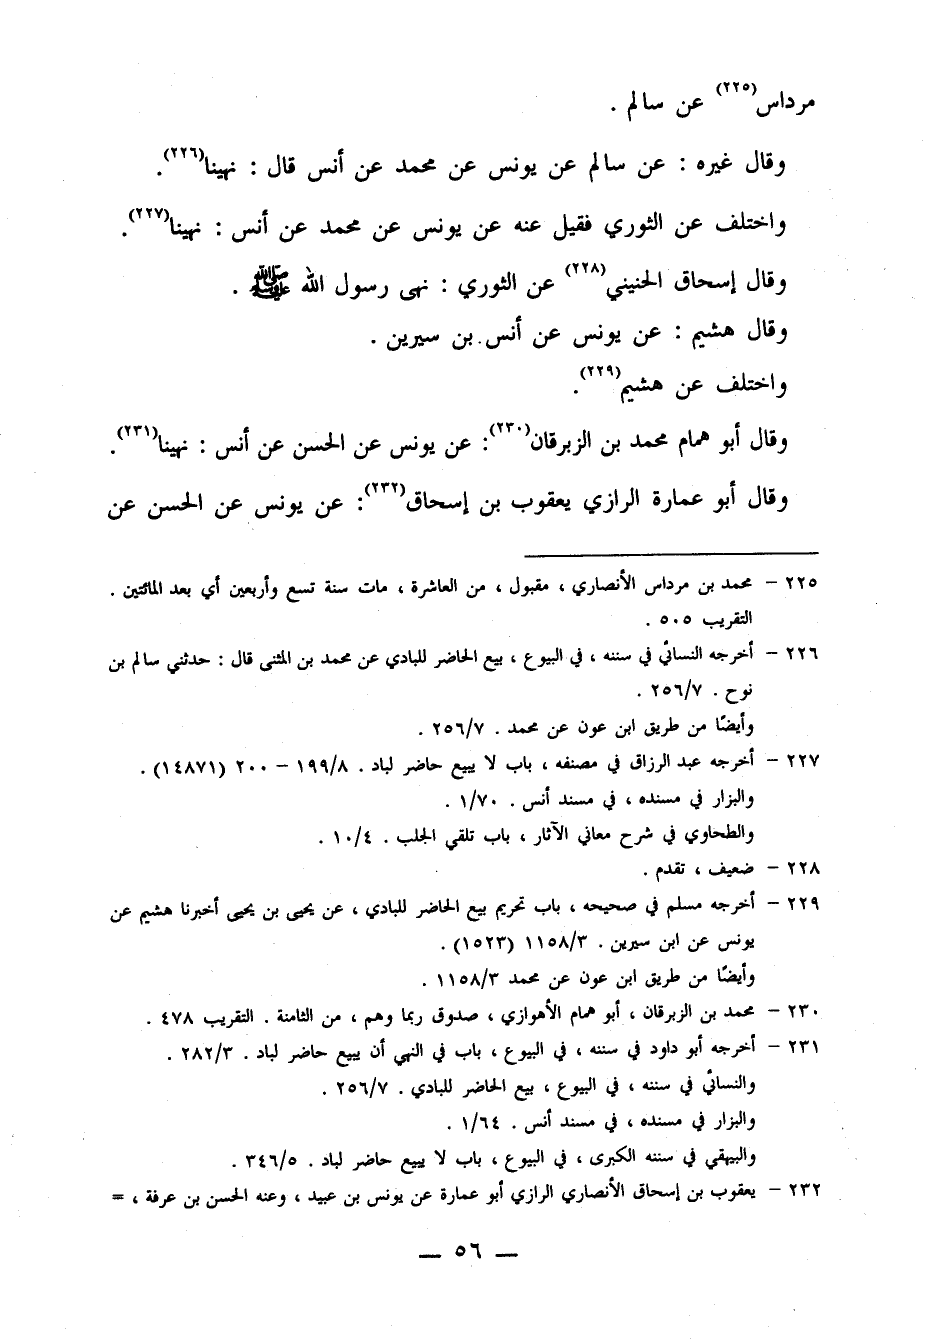 مرداس(٢٢٥) عن سالم .
وقال غيره : عن سالم عن يونس عن محمد عن أنس قال : نهينا(٢٢٦).
واختلف عن الثوري فقيل عنه عن يونس عن محمد عن أنس : نهينا(٢٢٧).
وقال إسحاق الحنيني(٢٢٨) عن الثوري : نهى رسول الله ﷺ .
وقال هشيم : عن يونس عن أنس بن سيرين .
واختلف عن هشيم(٢٢٩).
وقال أبو همام محمد بن الزبرقان(٢٣٠): عن يونس عن الحسن عن أنس : نهينا(٢٣١).
وقال أبو عمارة الرازي يعقوب بن إسحاق(٢٣٢): عن يونس عن الحسن عن
٢٢٥ – محمد بن مرداس الأنصاري ، مقبول ، من العاشرة ، مات سنة تسع وأربعين أي بعد المائتين .
التقريب ٥٠٥ .
٢٢٦ – أخرجه النسائي في سننه ، في البيوع ، بيع الحاضر للبادي عن محمد بن المثنى قال : حدثني سالم بن
نوح . ٢٥٦/٧ .
وأيضًا من طريق ابن عون عن محمد . ٢٥٦/٧ .
٢٢٧ – أخرجه عبد الرزاق في مصنفه ، باب لا يبيع حاضر لباد . ١٩٩/٨ – ٢٠٠ (١٤٨٧١) .
والبزار في مسنده ، في مسند أنس . ١/٧٠ .
والطحاوي في شرح معاني الآثار ، باب تلقي الجلب . ١٠/٤ .
٢٢٨ – ضعيف ، تقدم .
٢٢٩ – أخرجه مسلم في صحيحه ، باب تحريم بيع الحاضر للبادي ، عن يحيى بن يحيى أخبرنا هشيم عن
يونس عن ابن سيرين . ١١٥٨/٣ (١٥٢٣) .
وأيضًا من طريق ابن عون عن محمد ١١٥٨/٣ .
٢٣٠ – محمد بن الزبرقان ، أبو همام الأهوازي ، صدوق ربما وهم ، من الثامنة . التقريب ٤٧٨ .
٢٣١ – أخرجه أبو داود في سننه ، في البيوع ، باب في النهي أن يبيع حاضر لباد . ٢٨٢/٣ .
والنسائي في سننه ، في البيوع ، بيع الحاضر للبادي . ٢٥٦/٧ .
والبزار في مسنده ، في مسند أنس . ١/٦٤ .
والبيهقي في سننه الكبرى ، في البيوع ، باب لا يبيع حاضر لباد . ٣٤٦/٥ .
٢٣٢ – يعقوب بن إسحاق الأنصاري الرازي أبو عمارة عن يونس بن عبيد ، وعنه الحسن بن عرفة ، =
— ٥٦ —